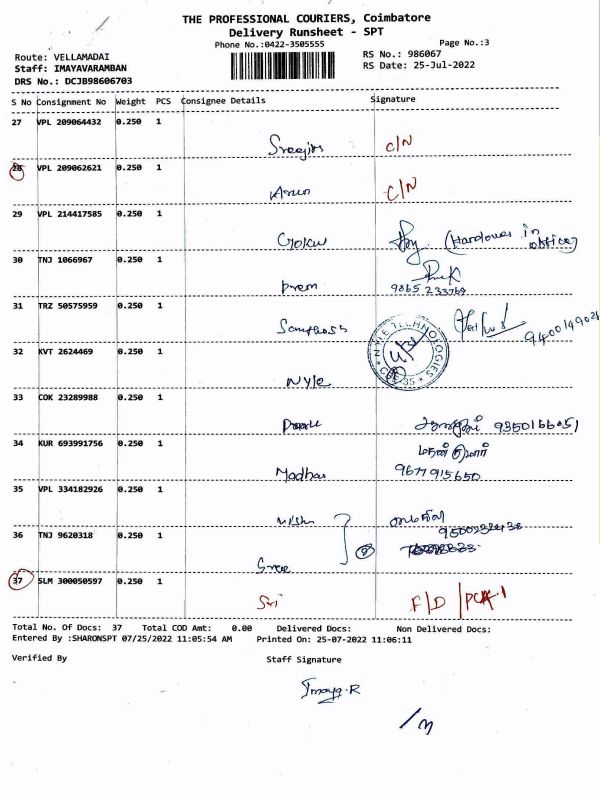 THE PROFESSIONAL COURIERS, Coimbatore
Delivery Runsheet - SPT
Phone No.:0422-3505555
Page No.:3
Route: VELLAMADAI
RS No.: 986067
Staff: IMAYAVARAMBAN
RS Date: 25-Jul-2022
DRS No.: DCJB98606703
S No Consignment No Weight PCS Consignee Details Signature
27 VPL 209064432 0.250 1
Sreejith C/N
28 VPL 209062621 0.250 1
Arun C/N
29 VPL 214417585 0.250 1
Gokul (Handover in office)
30 TNJ 1066967 0.250 1
Prem
9865 233769
31 TRZ 50575959 0.250 1
Santhosh
32 KVT 2624469 0.250 1
NYLE TECHNOLOGIES
CBE-35
Nyle
33 COK 23289988 0.250 1
34 KUR 693991756 0.250 1
Madhan 9677915650
35 VPL 334182926 0.250 1
36 TNJ 9620318 0.250 1
Sree
37 SLM 300050597 0.250 1
Sri F/D
Total No. Of Docs: 37 Total COD Amt: 0.00 Delivered Docs: Non Delivered Docs:
Entered By :SHARONSPT 07/25/2022 11:05:54 AM Printed On: 25-07-2022 11:06:11
Verified By Staff Signature
Imaya.R